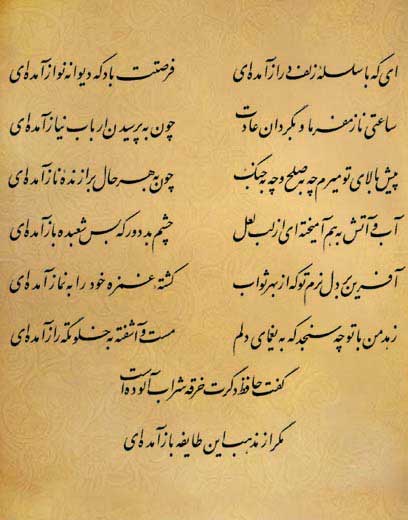 ای که با سلسلهٔ زلف دراز آمده‌ای فرصتت باد که دیوانه نواز آمده‌ای
ساعتی ناز مفرما و بگردان عادت چون به پرسیدن ارباب نیاز آمده‌ای
پیش بالای تو میرم چه به صلح و چه به جنگ چون به هر حال برازندهٔ ناز آمده‌ای
آب و آتش به هم آمیخته‌ای از لب لعل چشم بد دور که بس شعبده باز آمده‌ای
آفرین بر دل نرم تو که از بهر ثواب کشته غمزه خود را به نماز آمده‌ای
زهد من با تو چه سنجد که به یغمای دلم مست و آشفته به خلوتگه راز آمده‌ای
گفت حافظ دگرت خرقه شراب آلوده است
مگر از مذهب این طایفه باز آمده‌ای